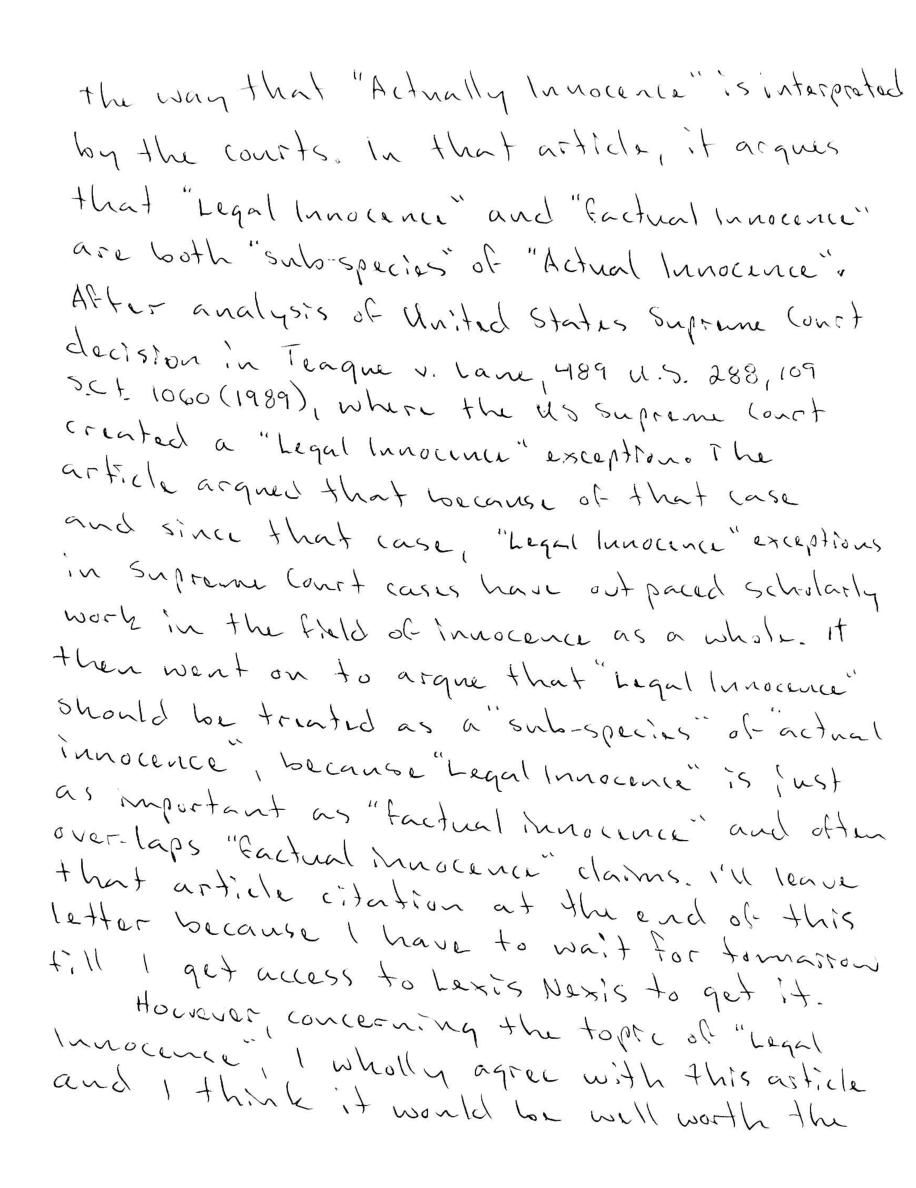 the way that "Actually Innocence" is interpreted
by the courts. In that article, it argues
that "Legal Innocence" and "factual innocence"
are both "sub-species" of "Actual Innocence".
After analysis of United States Supreme Court
decision in Teague v. Lane, 489 U.S. 288, 109
S.Ct. 1060 (1989), where the US Supreme Court
created a "Legal Innocence" exception. The
article argued that because of that case
and since that case, "Legal Innocence" exceptions
in Supreme Court cases have out paced scholarly
work in the field of innocence as a whole. It
then went on to argue that "Legal Innocence"
should be treated as a "sub-species" of "actual
innocence", because "Legal Innocence" is just
as important as "factual innocence" and often
over-laps "factual innocence" claims. I'll leave
that article citation at the end of this
letter because I have to wait for tomarrow
till I get access to Lexis Nexis to get it.
However, concerning the topic of "Legal
Innocence", I wholly agree with this article
and I think it would be well worth the